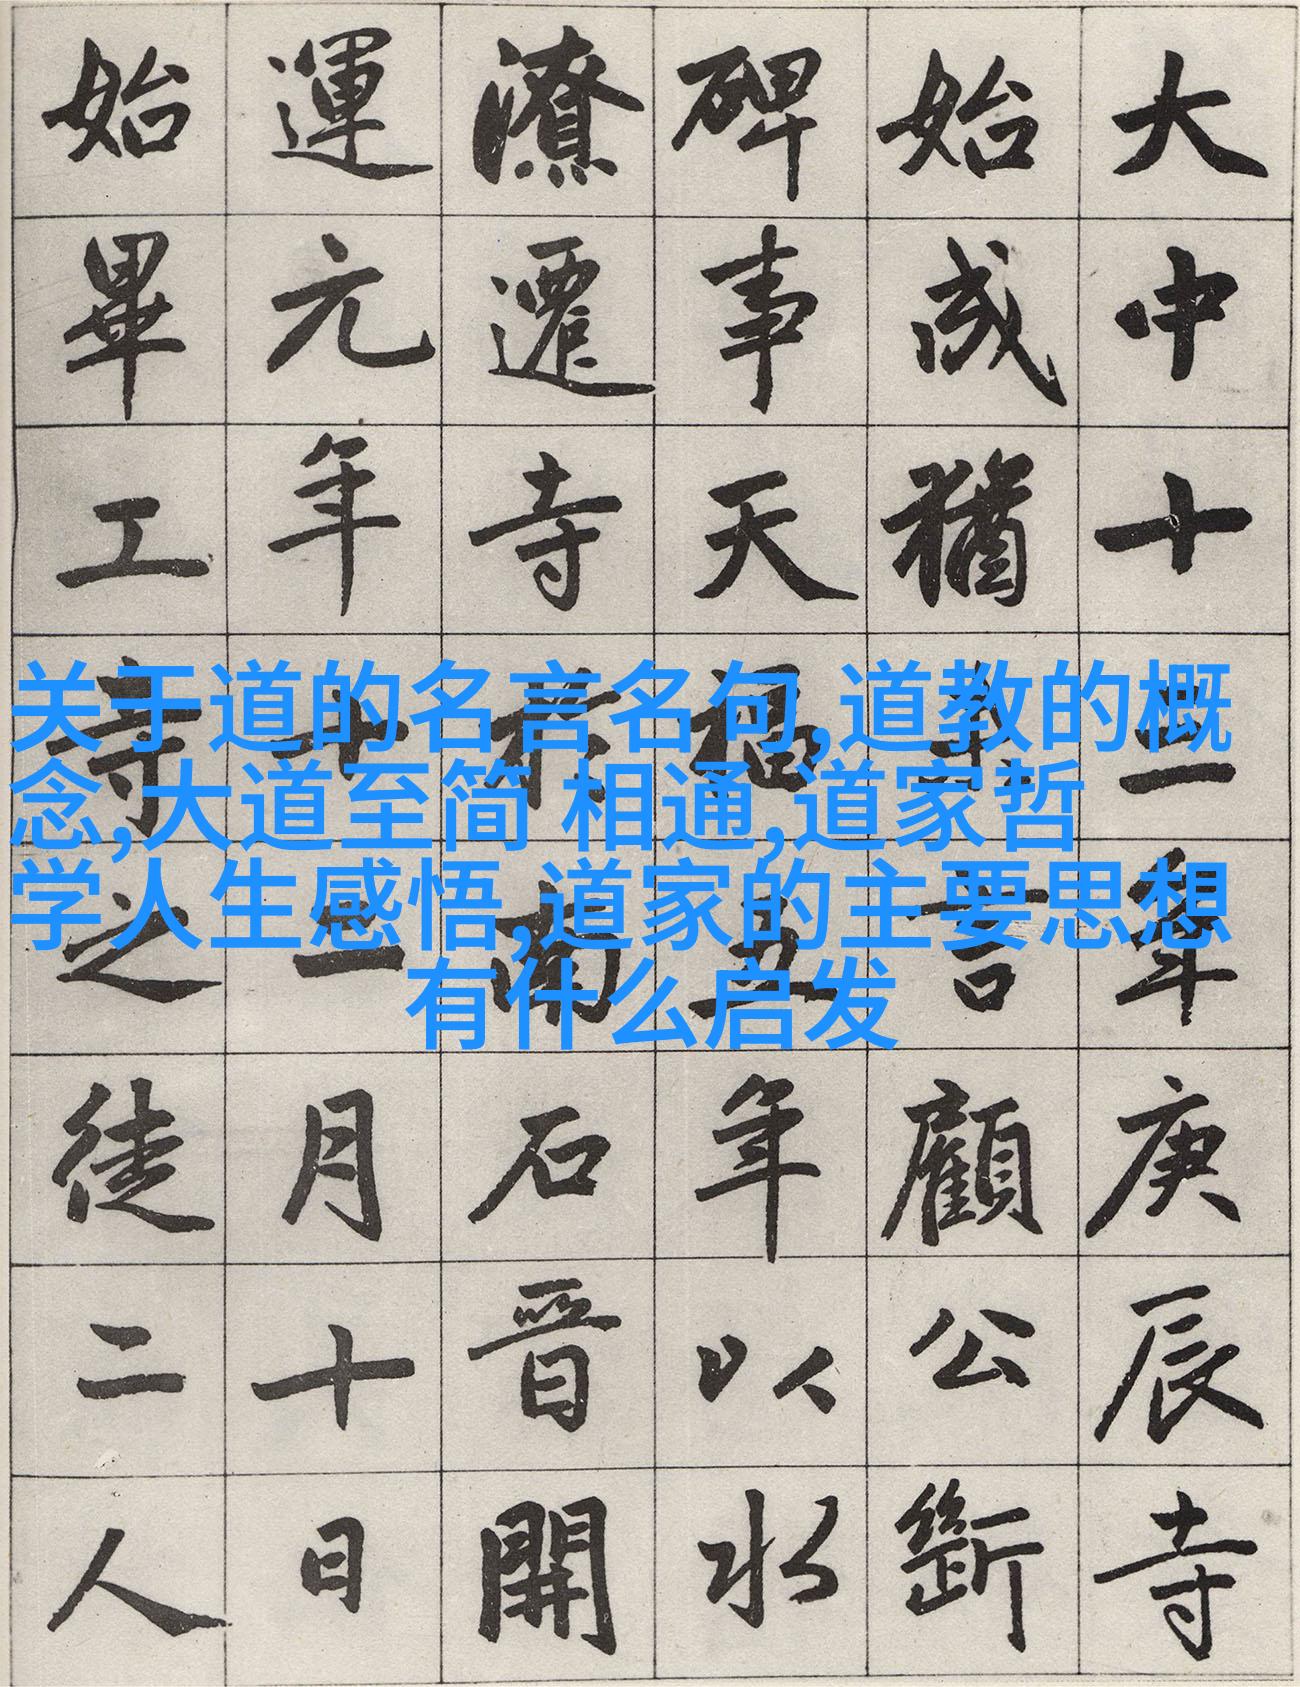 大中十三年庚辰寺
始成猶言顧公
碑事天福五年以水
潦遷寺南石晉開
運元年十二月十日
始畢工寺之徒二人
关于道的名言名句,道教的概
念,大道至简 相通,道家哲
学人生感悟,道家的主要思想
有什么启发